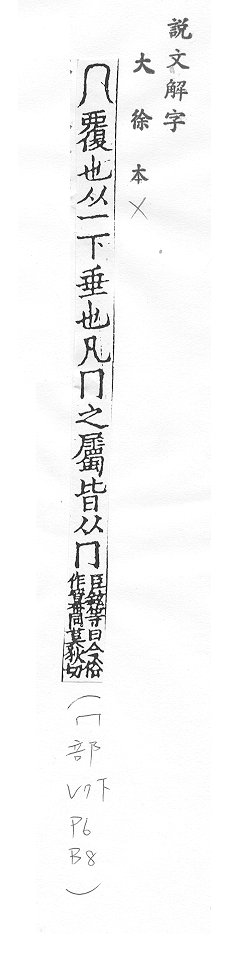 説文解字
大徐本×
冂覆也从一下垂也凡冂之屬皆从冂
臣鉉等曰今俗
作冪同莫狄切
(冖部V7下P6B8)